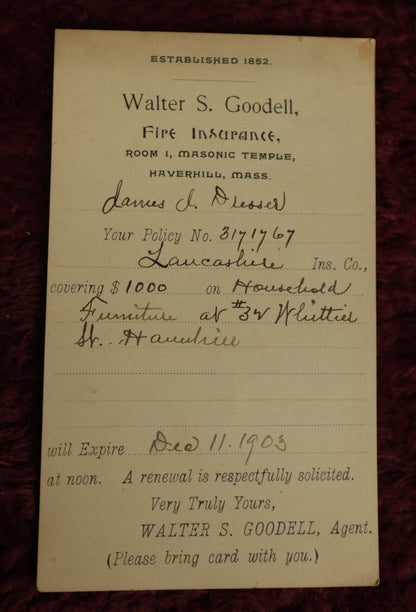 ESTABLISHED 1852.
Walter S. Goodell,
Fire Insurance,
ROOM 1, MASONIC TEMPLE,
HAVERHILL, MASS.
James J. Dresser
Your Policy No. 3171767
Lancashire Ins. Co.,
covering $ 1000 on Household
Furniture at #32 Whittier
St. Haverhill
will Expire Dec 11. 1903
at noon. A renewal is respectfully solicited.
Very Truly Yours,
WALTER S. GOODELL, Agent.
(Please bring card with you.)